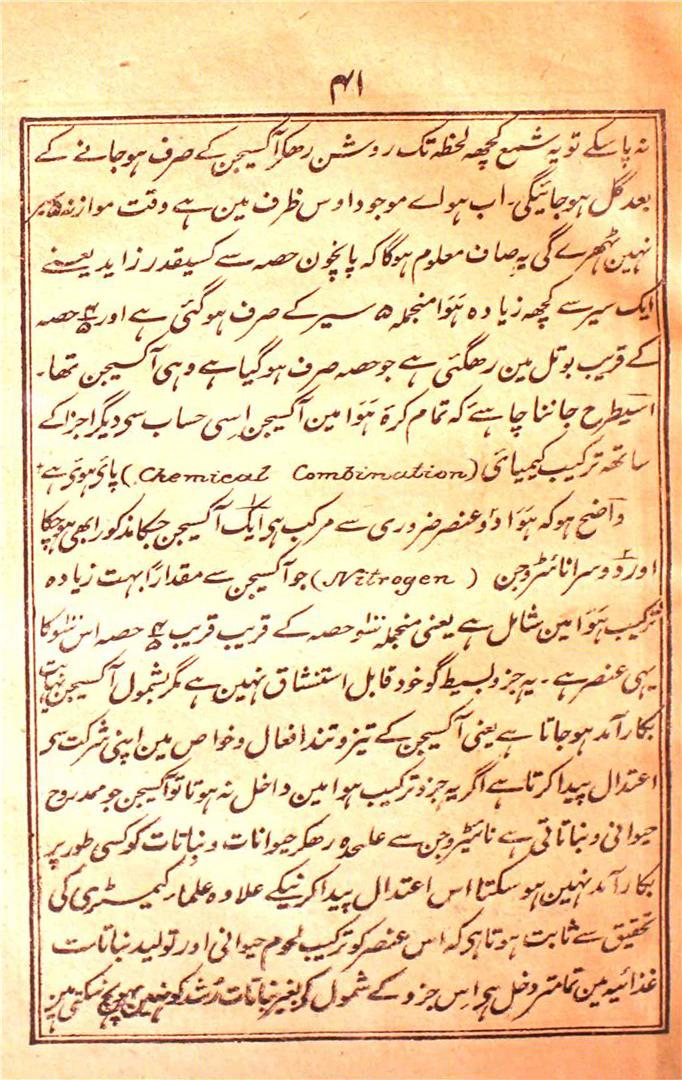 ۴۱
نہ پاسکے تو یہ شمع کچھہ لحظہ تک روشن رھکر آکسیجن کے صرف ہوجانے کے
بعد گل ہوجائیگی۔ اب ہواے موجود اوس ظرف مین ہے وقت موازنہ ۵ سیر
نہین ٹھرے گی یہ صاف معلوم ہوگا کہ پانچون حصہ سے کسیقدر زاید یعنے
ایک سیر سے کچھہ زیادہ ہَوَا منجملہ ۵ سیر کے صرف ہوگئی ہے اور ۴/۵ حصہ
کے قریب بوتل مین رھگئی ہے جو حصہ صرف ہوگیا ہے وہی آکسیجن تھا۔
اسیطرح جاننا چاہئے کہ تمام کرہ ہَوَا مین آکسیجن اِسی حساب سی دیگر اجزا کے
ساتھہ ترکیب کیمیائی (Chemical Combination) پائی ہوئی ہے
واضح ہو کہ ہَوَا دو عنصر ضروری سے مرکب ہی ۱ ایک آکسیجن جسکا مذکور ابھی ہوچکا
اور ۲ دوسرا نائٹروجن (Nitrogen) جو آکسیجن سے مقداراً بہت زیادہ
ترکیب ہَوَا مین شامل ہے یعنی منجملہ سَو حصہ کے قریب قریب ۴/۵ حصہ اس سَو کا
یہی عنصر ہے۔ یہ جزو بسیط گو خود قابل استنشاق نہین ہے مگر بشمول آکسیجن نہایت
بکار آمد ہوجاتا ہے یعنی آکسیجن کے تیز و تند افعال و خواص مین اپنی شرکت سی
اعتدال پیدا کرتا ہے اگر یہ جزو ترکیب ہوا مین داخل نہ ہوتا تو آکسیجن جو ممد روح
حیوانی و نباتاتی ہے نائٹروجن سے علیحدہ رھکر حیوانات و نباتات کو کسی طور پر
بکار آمد نہین ہوسکتا اس اعتدال پیدا کرنیکے علاوہ علماء کیمسٹری کی
تحقیق سے ثابت ہوتا ہی کہ اس عنصر کو ترکیب لحوم حیوانی اور تولید نباتات
غذائیہ مین تمامتر دخل ہی اِس جزو کے شمول کی بغیر نباتات رُشد کو نہین پہونچ سکتی ہین